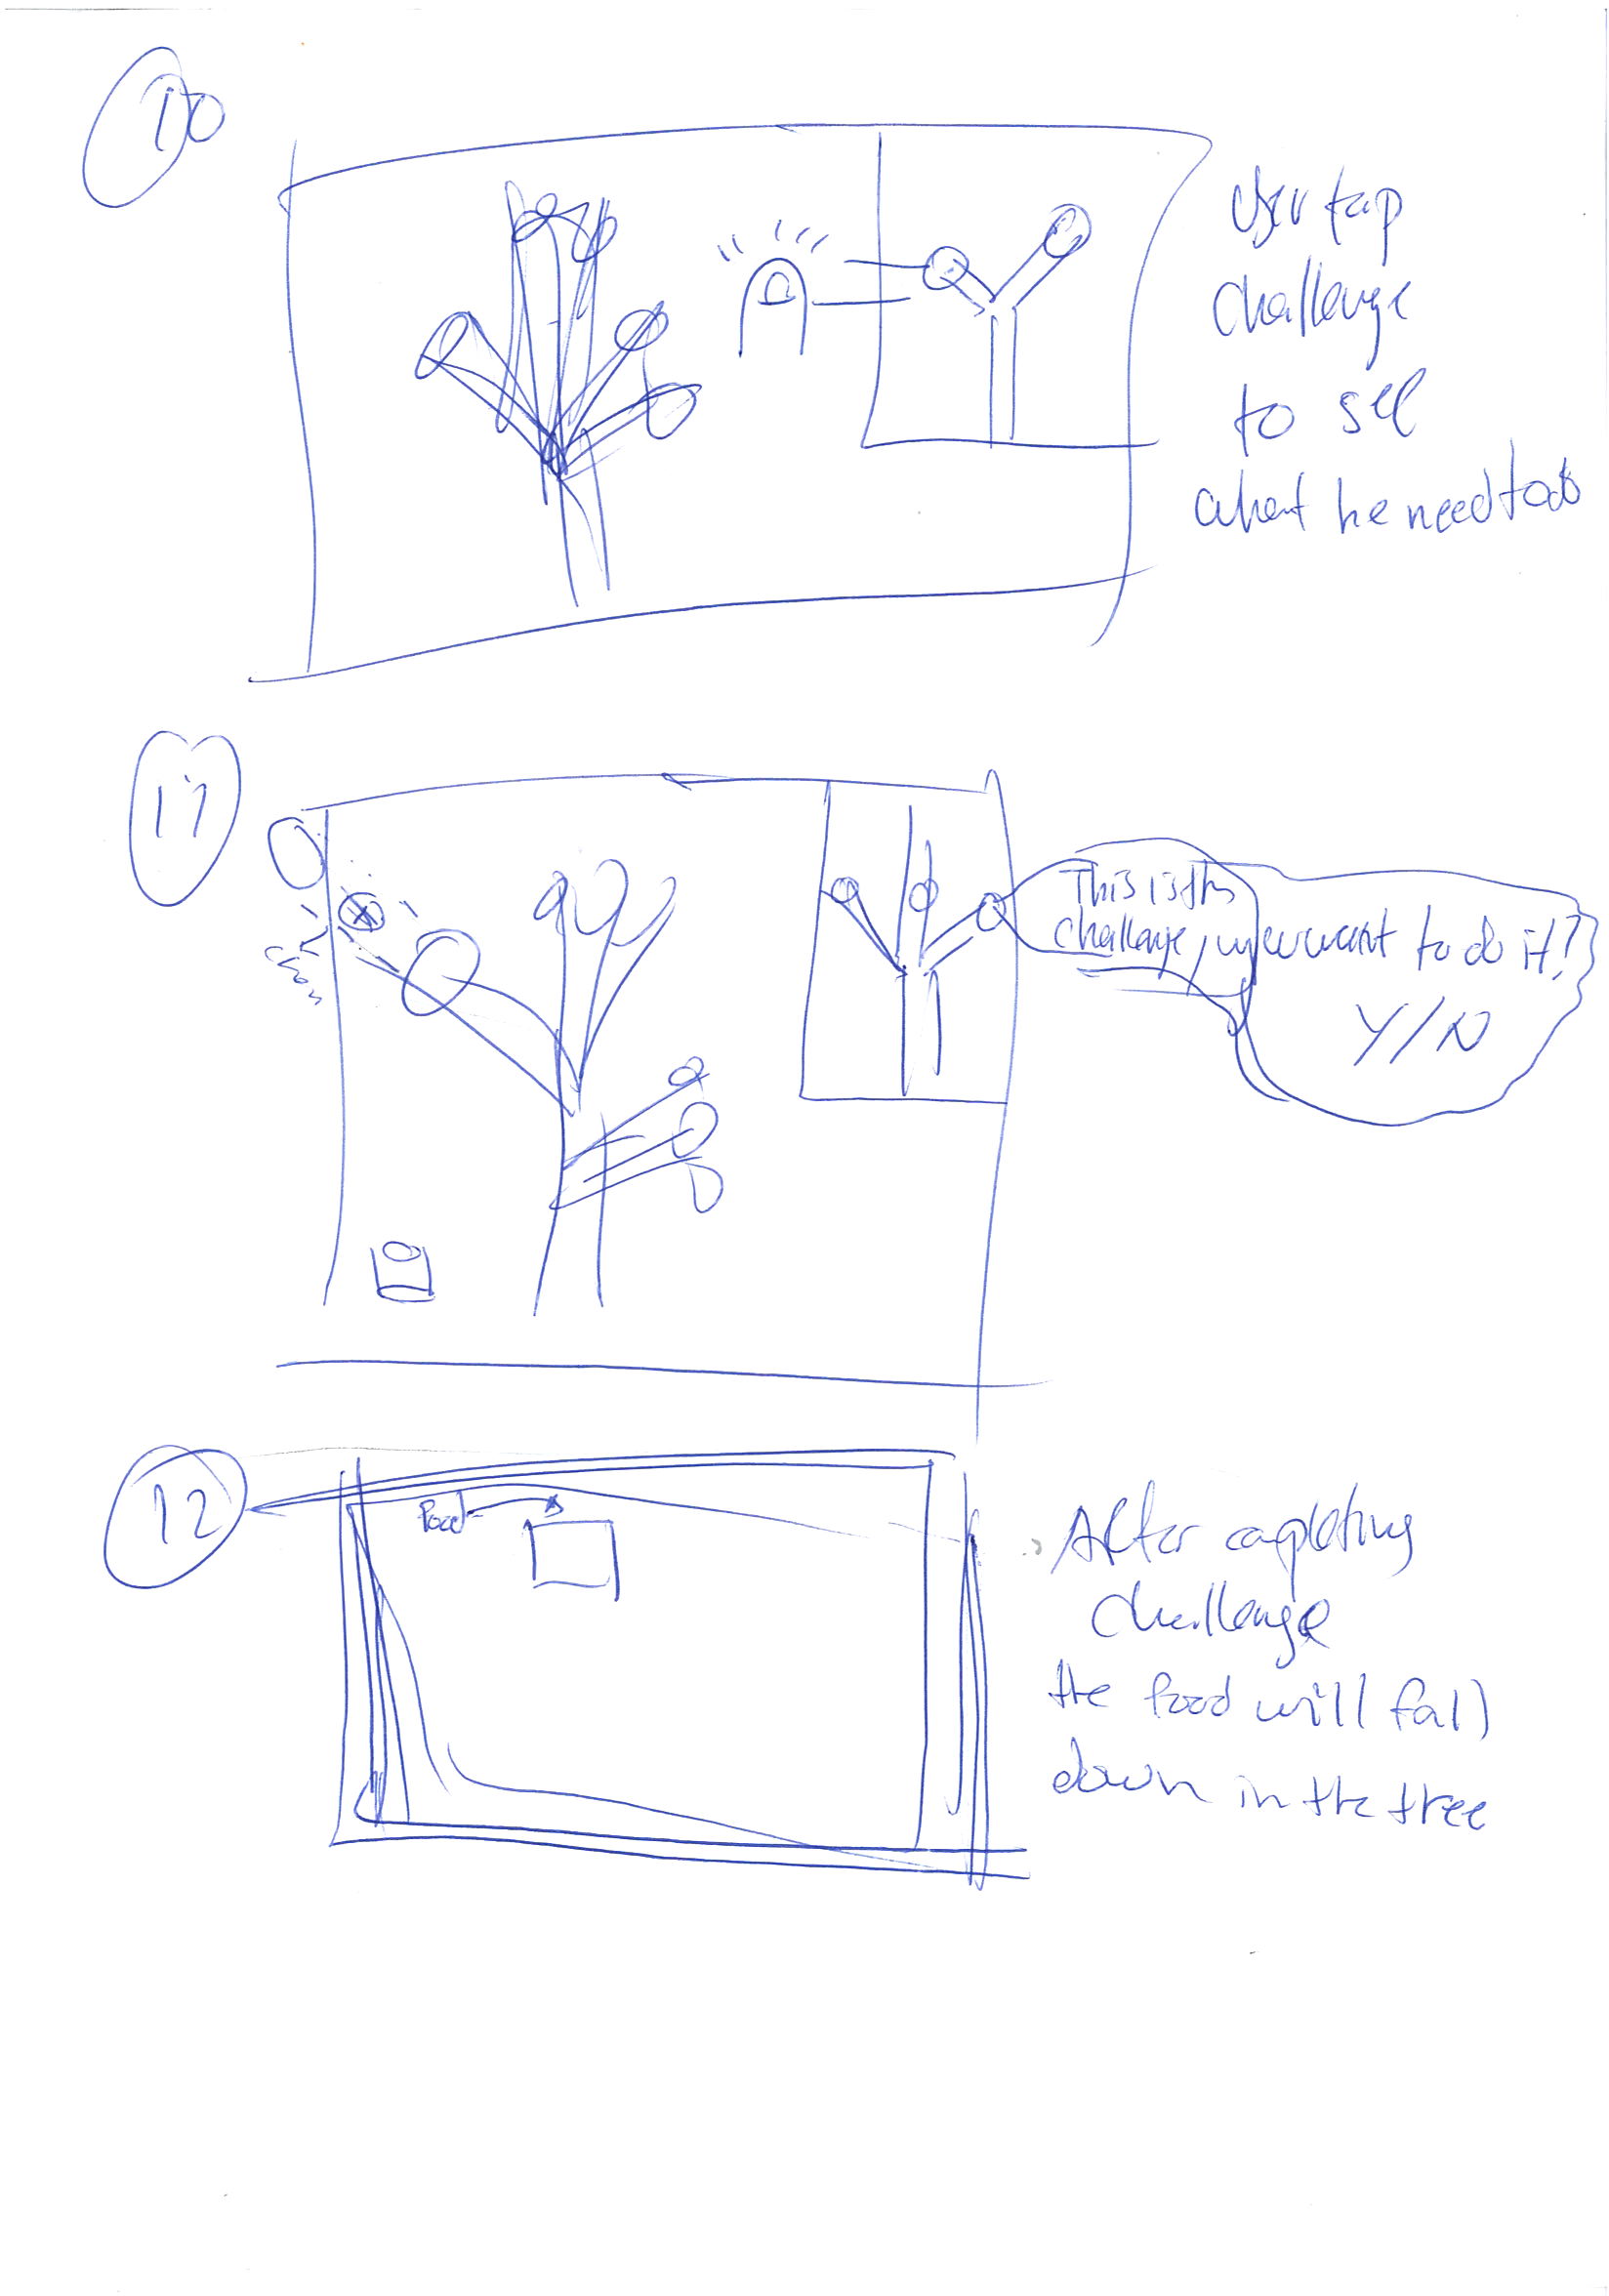 10
User tap
challenge
to see
what he need to do
11
This is the
challenge, want to do it?
Y/N
12
Food
After completing
challenge
the food will fall
down in the tree